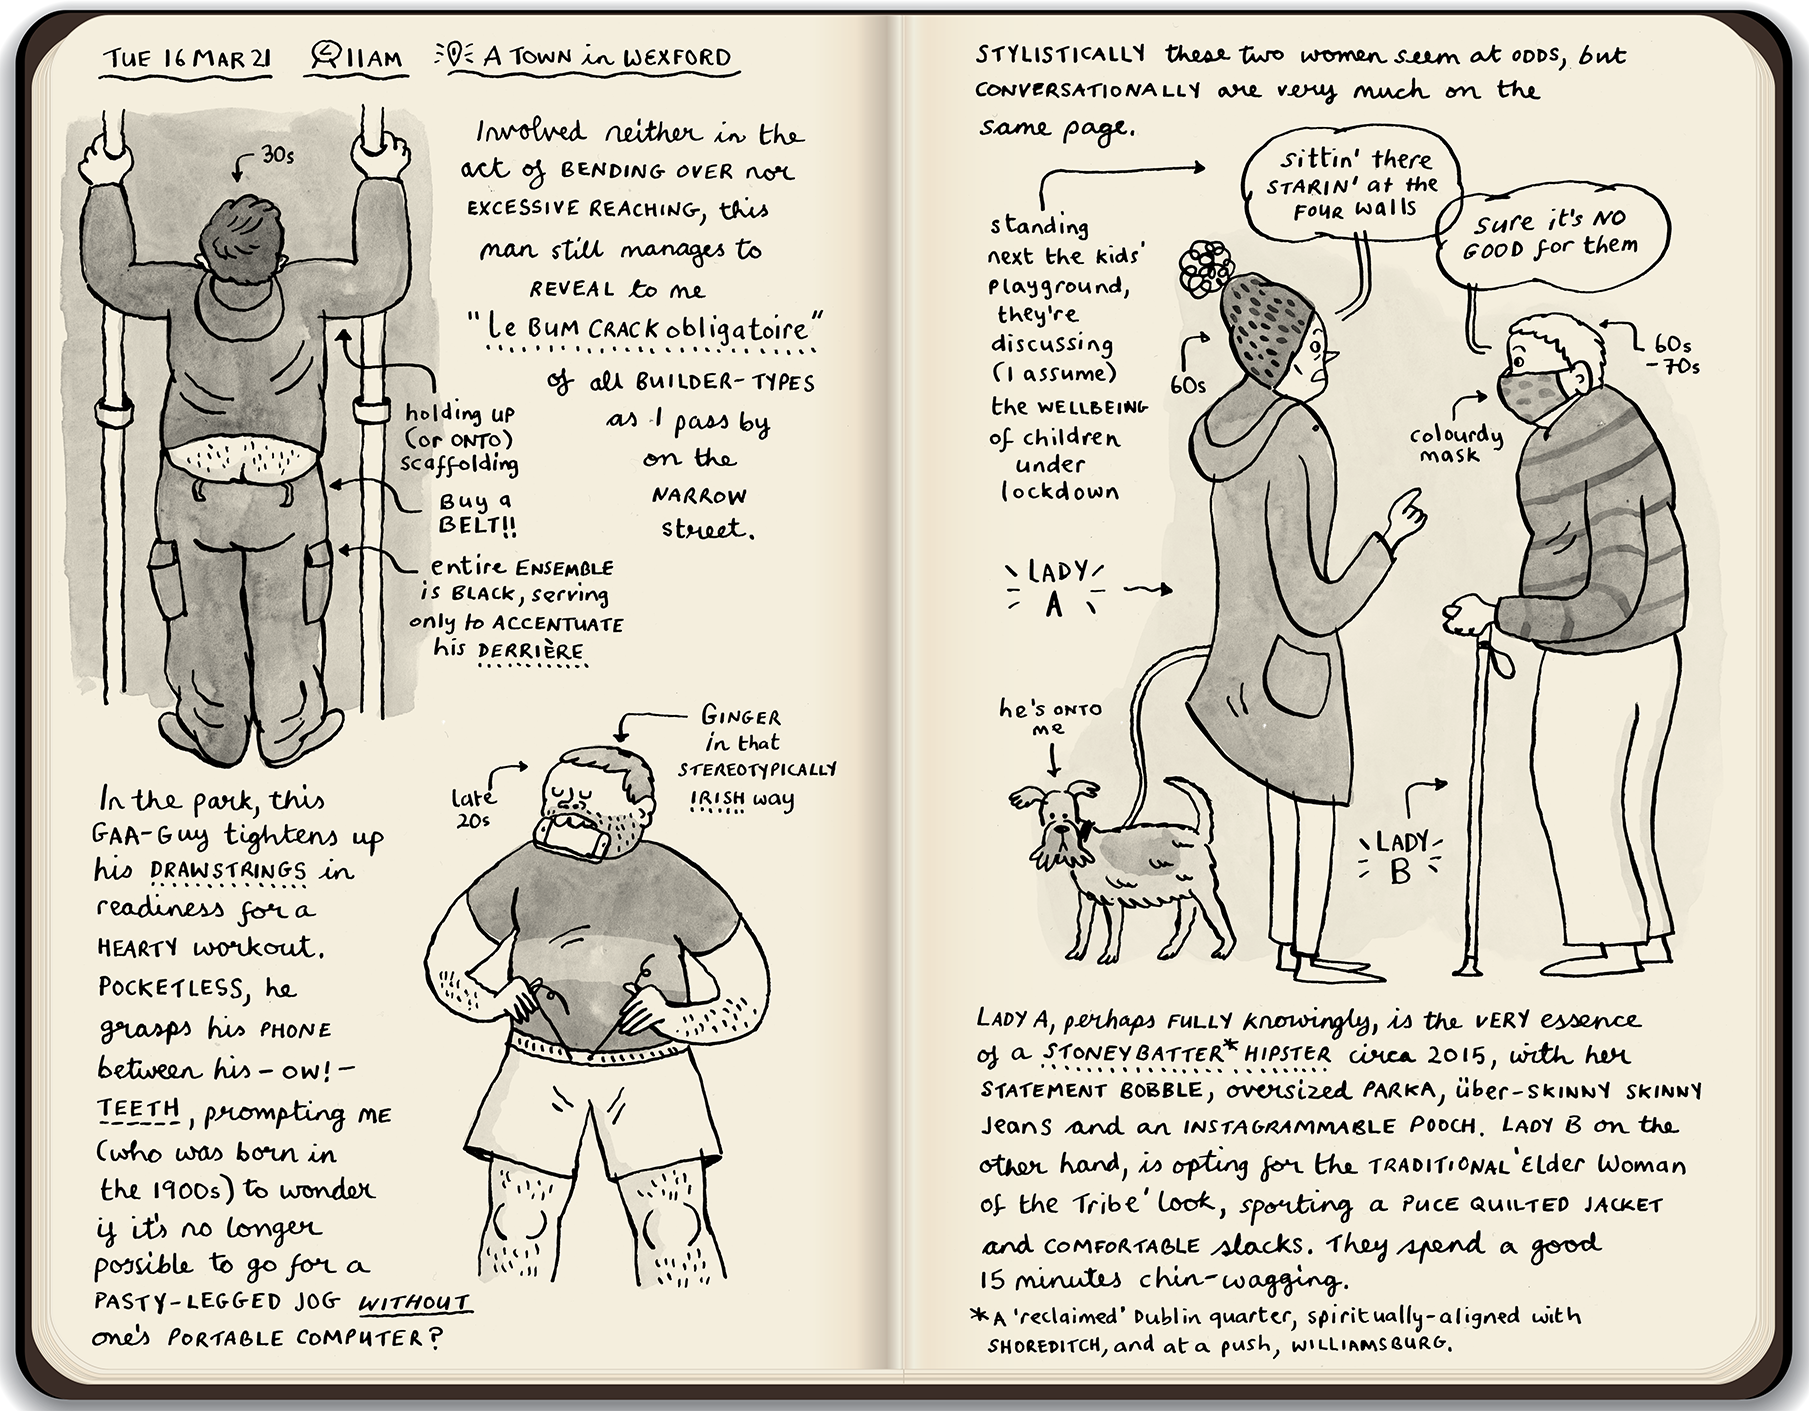 TUE 16 MAR 21 11AM A TOWN in WEXFORD
30s
Involved neither in the
act of BENDING OVER nor
EXCESSIVE REACHING, this
man still manages to
REVEAL to me
"le BUM CRACK obligatoire"
of all BUILDER-TYPES
as I pass by
on the
NARROW
street.
holding up
(or ONTO)
scaffolding
BUY a
BELT!!
entire ENSEMBLE
is BLACK, serving
only to ACCENTUATE
his DERRIÈRE
GINGER
in that
STEREOTYPICALLY
IRISH way
late
20s
In the park, this
GAA-Guy tightens up
his DRAWSTRINGS in
readiness for a
HEARTY workout.
POCKETLESS, he
grasps his PHONE
between his - OW! -
TEETH, prompting ME
(who was born in
the 1900s) to wonder
if it's no longer
possible to go for a
PASTY-LEGGED JOG WITHOUT
one's PORTABLE COMPUTER?
STYLISTICALLY these two women seem at ODDS, but
CONVERSATIONALLY are very much on the
same page.
sittin' there
STARIN' at the
FOUR walls
sure it's NO
GOOD for them
standing
next the kids'
playground,
they're
discussing
(I assume)
the WELLBEING
of children
under
lockdown
60s
60s
-70s
colourdy
mask
LADY
A
he's ONTO
me
LADY
B
LADY A, perhaps FULLY knowingly, is the VERY essence
of a STONEYBATTER* HIPSTER circa 2015, with her
STATEMENT BOBBLE, oversized PARKA, über-SKINNY SKINNY
Jeans and an INSTAGRAMMABLE POOCH. LADY B on the
other hand, is opting for the TRADITIONAL 'Elder Woman
of the Tribe' look, sporting a PUCE QUILTED JACKET
and COMFORTABLE slacks. They spend a good
15 minutes chin-wagging.
*A 'reclaimed' Dublin quarter, spiritually-aligned with
SHOREDITCH, and at a push, WILLIAMSBURG.